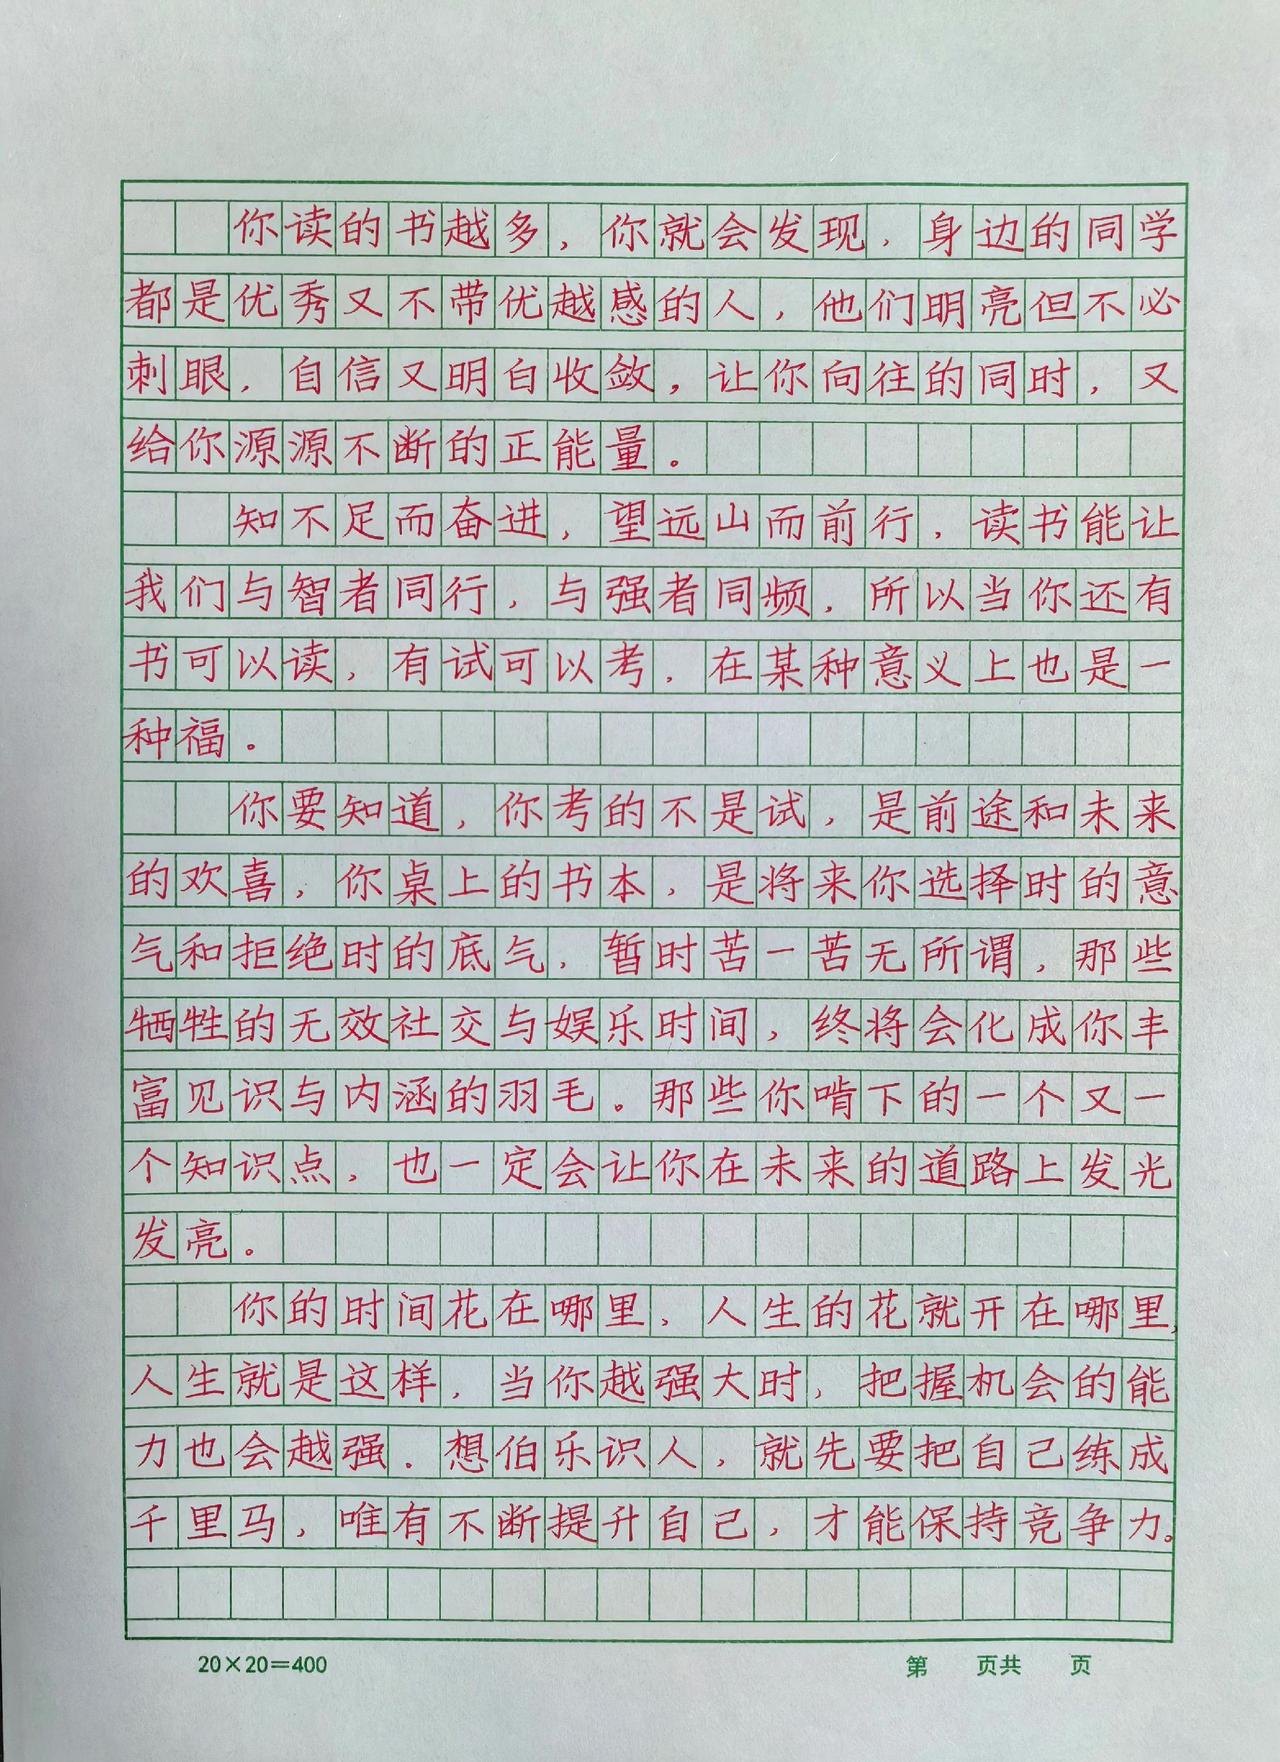 你读的书越多，你就会发现，身边的同学
都是优秀又不带优越感的人，他们明亮但不必
刺眼，自信又明白收敛，让你向往的同时，又
给你源源不断的正能量。
知不足而奋进，望远山而前行，读书能让
我们与智者同行，与强者同频，所以当你还有
书可以读，有试可以考，在某种意义上也是一
种福。
你要知道，你考的不是试，是前途和未来
的欢喜，你桌上的书本，是将来你选择时的意
气和拒绝时的底气，暂时苦一苦无所谓，那些
牺牲的无效社交与娱乐时间，终将会化成你丰
富见识与内涵的羽毛。那些你啃下的一个又一
个知识点，也一定会让你在未来的道路上发光
发亮。
你的时间花在哪里，人生的花就开在哪里，
人生就是这样，当你越强大时，把握机会的能
力也会越强．想伯乐识人，就先要把自己练成
千里马，唯有不断提升自己，才能保持竞争力。
20×20=400 第 页共 页